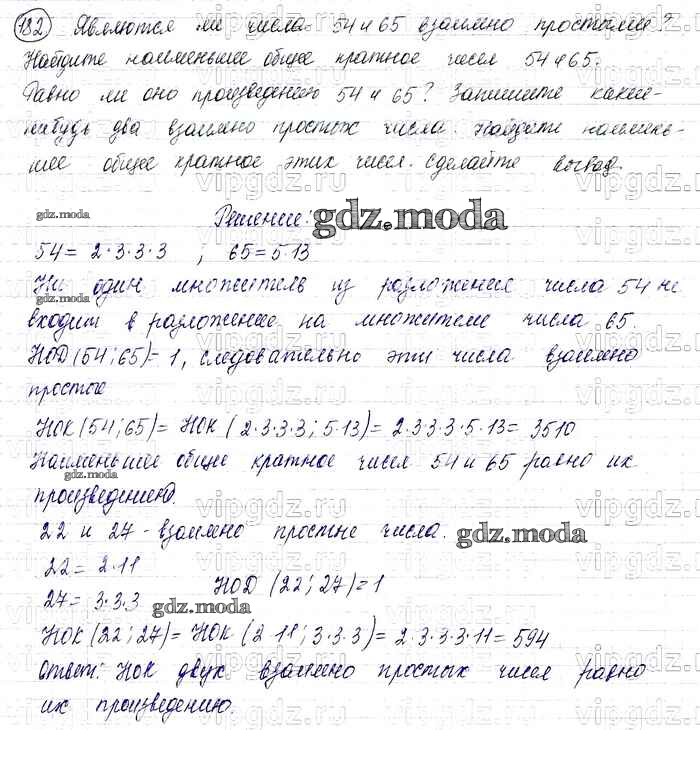 182) Являются ли числа 54 и 65 взаимно простыми?
Найдите наименьшее общее кратное чисел 54 и 65.
Равно ли оно произведению 54 и 65? Запишите какие-
нибудь два взаимно простых числа. Найдите наимень-
шее общее кратное этих чисел. Сделайте вывод.
gdz.moda
Решение:
gdz.moda
54 = 2·3·3·3 ; 65 = 5·13
Ни один множитель из разложения числа 54 не
gdz.moda
входит в разложение на множители числа 65.
НОД(54; 65) = 1, следовательно эти числа взаимно
простые
НОК (54; 65) = НОК (2·3·3·3; 5·13) = 2·3·3·3·5·13 = 3510
Наименьшее общее кратное чисел 54 и 65 равно их
gdz.moda
произведению.
22 и 27 - взаимно простые числа.
gdz.moda
22 = 2·11
НОД (22; 27) = 1
27 = 3·3·3
gdz.moda
НОК (22; 27) = НОК (2·11; 3·3·3) = 2·3·3·3·11 = 594
Ответ: НОК двух взаимно простых чисел равно
их произведению.
vipgdz.ru